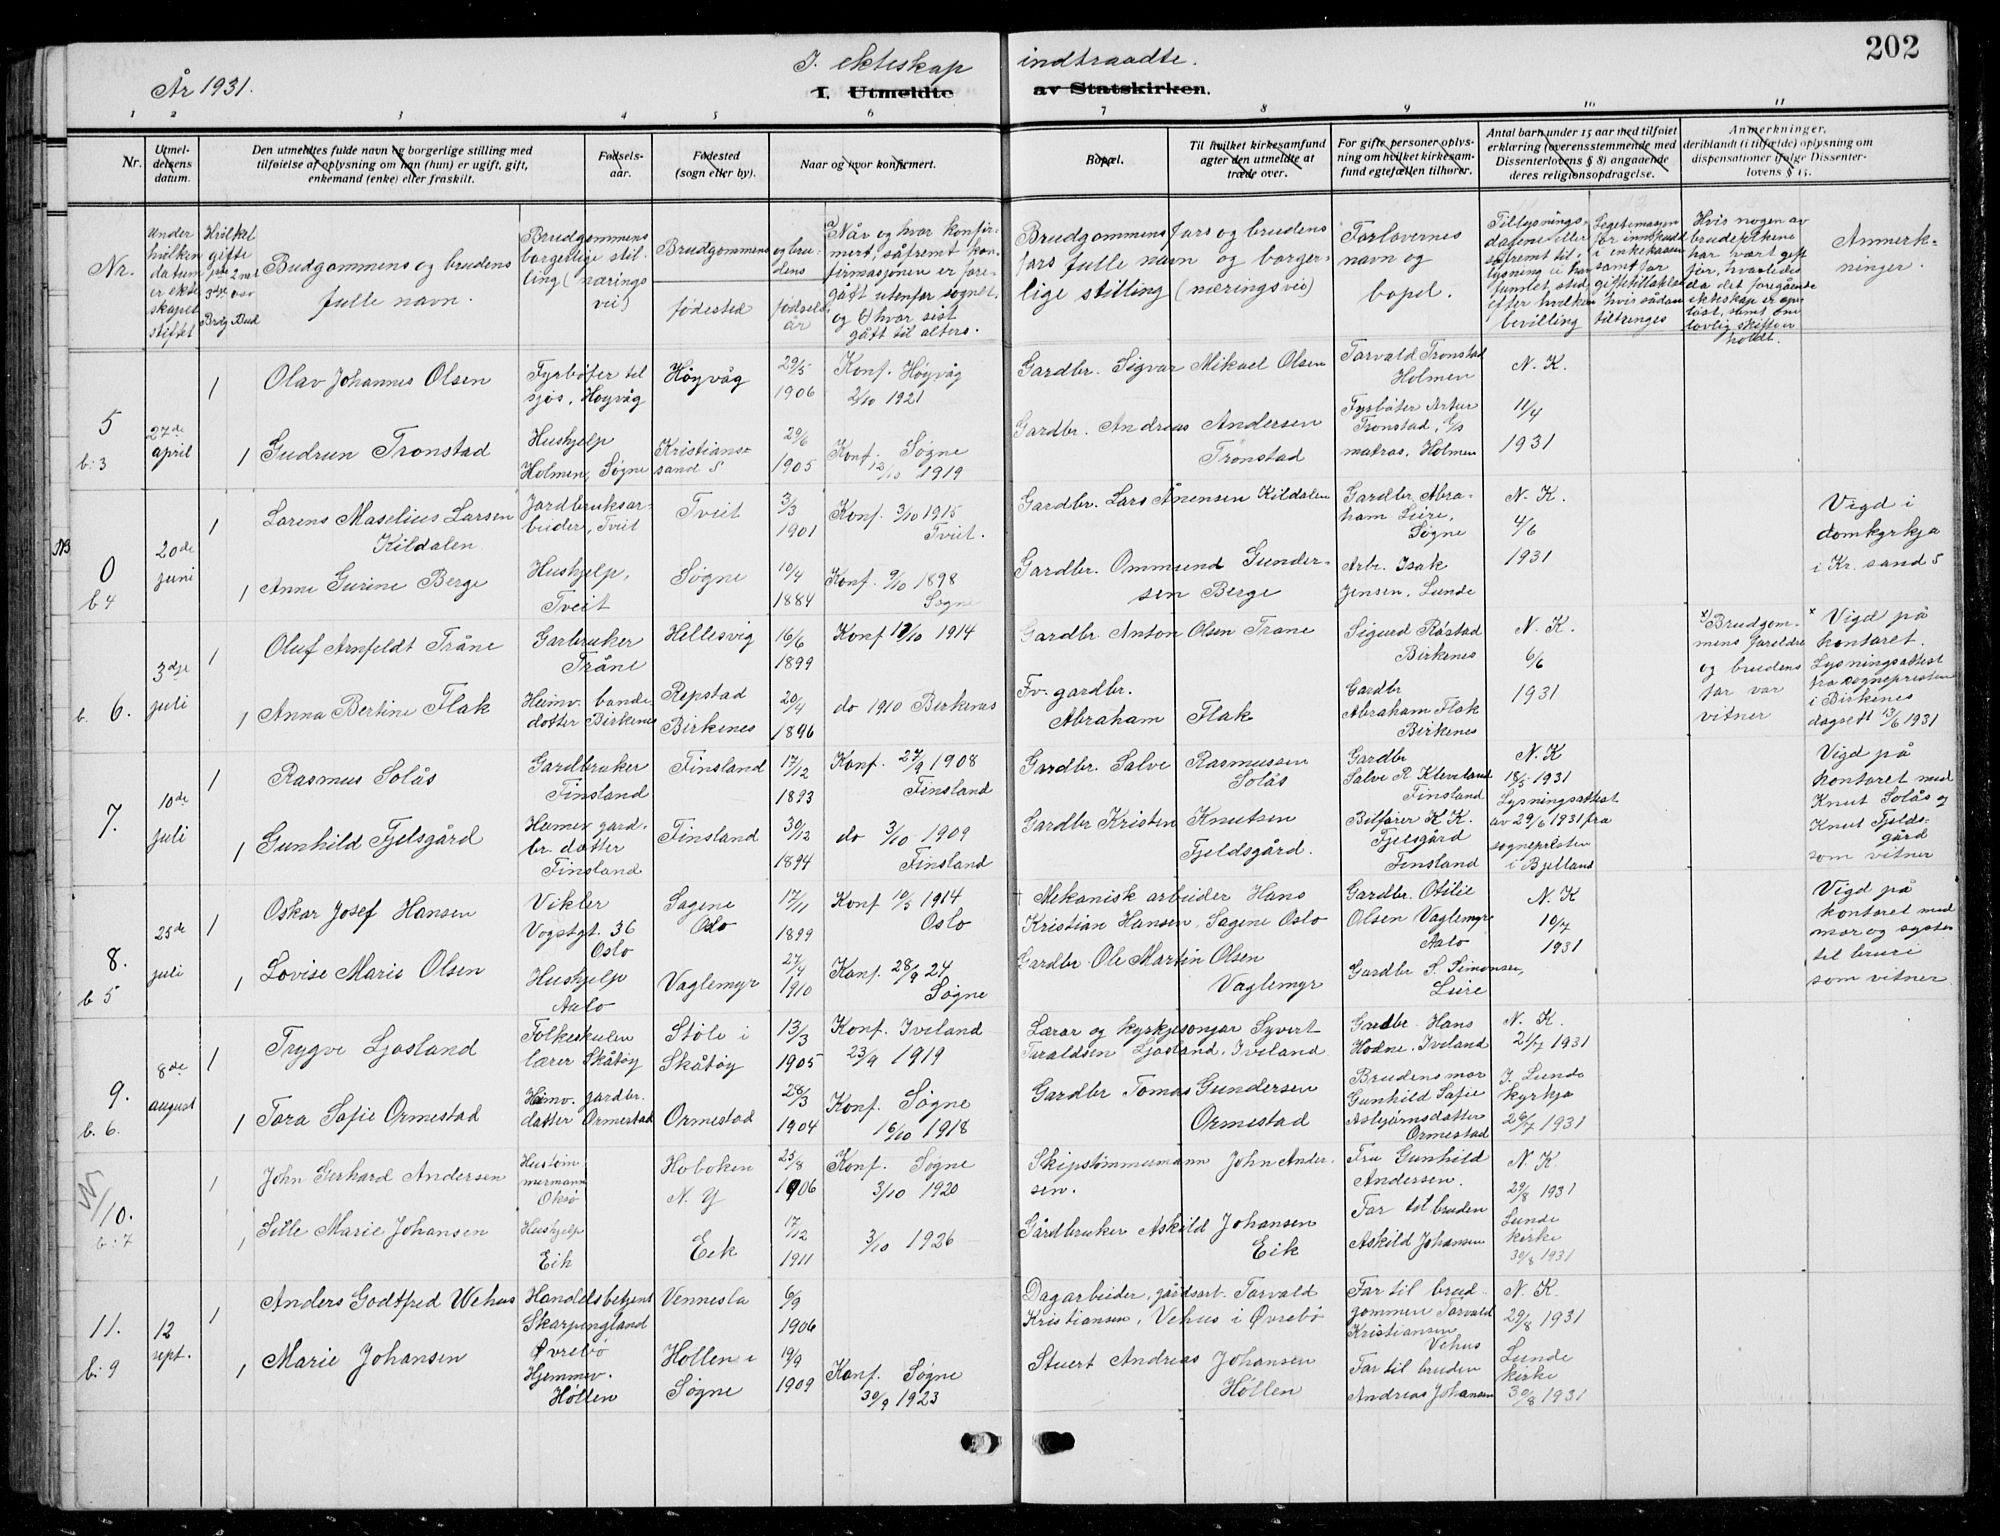 202
År 1931.
I. ekteskap indtraadte.
I. Utmeldte av Statskirken.
1 2 3 4 5 6 7 8 9 10 11
Nr.
Utmel-
delsens
datum.
Den utmeldtes fulde navn og borgerlige stilling med
tilføielse af oplysning om han (hun) er ugift, gift,
enkemand (enke) eller fraskilt.
Fødsels-
aar.
Fødested
(sogn eller by).
Naar og hvor konfirmert.
Bopæl.
Til hvilket kirkesamfund
agter den utmeldte at
træde over.
For gifte personer oplys-
ning om hvilket kirkesam-
fund egtefællen tilhører.
Antal barn under 15 aar med tilføiet
erklæring (overensstemmende med
Dissenterlovens § 8) angaaende
deres religionsopdragelse.
Anmerkninger,
deriblandt (i tilfælde) oplysning om
dispensationer ifølge Dissenter-
lovens § 15.
Nr.
Under
hvilken
datum
er ekte-
skapet
stiftet
Hvilket
gifte
1ste 2net
3dje osv
Brdg Brud
Budgommens og brudens
fulle navn.
Brudgommens
borgerlige stil-
ling (nærings
vei)
Brudgommens og bru-
dens
fødested
fødsels-
år
Når og hvor konfir-
mert, såfremt kon-
firmasjonen er fore-
gått utenfor sognet,
og hvor sist
gått til alters.
Brudgommens fars og brudens
fars fulle navn og borger-
lige stilling (næringsvei)
Forlovernes
navn og
bopel.
Tillysnings-
datene eller
såfremt til-
lysning ei har
funnet sted
efter hvilken
bevilling
Legitimasjon
for innskudd
i enkekassen
samt for
giftetillatelse
hvis sådan
tiltrenges
Hvis nogen av
brudefolkene
har vært gift
før, hvorledes
da det foregående
ekteskap er opp-
løst, samt om
lovlig skifte er
holdt.
Anmerk-
ninger.
5
b:3
27de
april
1
Olav Johannes Olsen
Fyrbøter til
sjøs, Høyvåg
Høyvåg
29/5
1906
Konf. Høyvåg
2/10 1921
Gardbr. Sigvar Mikael Olsen
Torvald Tronstad
Holmen
N. K.
1
Gudrun Tronstad
Hushjelp
Holmen, Søgne
Kristians-
sand S
29/6
1905
Konf. Søgne
12/10 1919
Gardbr. Andreas Andersen
Tronstad
Fyrbøter Artur
Tronstad, S/s
matros, Holmen
11/4
1931
NB
0
b 4
20de
juni
1
Lorens Maselius Larsen
Kildalen
Jordbruksar-
beider, Tveit
Tveit
3/3
1901
Konf. 3/10 1915
Tveit.
Gardbr. Lars Ånensen Kildalen
Gardbr. Abra-
ham Leire,
Søgne
N. K.
4/6
1931
Vigd i
domkyrkja
i Kr. sand S
1
Anne Gurine Berge
Hushjelp,
Tveit
Søgne
10/4
1884
Konf. 9/10 1898
Søgne
Gardbr. Ommund Gunder-
sen Berge
Arbr. Isak
Jensen, Lunde
b. 6.
3dje
juli
1
Oluf Arnfeldt Tråne
Garbruker
Tråne
Hellesvig
16/6
1899
Konf 11/10 1914
Gardbr Anton Olsen Trane
Sigurd Røstad
Birkenes
N. K.
6/6
1931
x) Brudgom-
mens foreldre
og brudens
far var
vitner
x Vigd på
kontoret.
Lysningsattest
fra sognepresten
i Birkenes
dagsedt 13/6 1931
1
Anna Bertine Flak
Heimv. bonde
dotter Birkenes
Repstad
Birkenes
20/4
1896
do 1910 Birkenes
Fv. gardbr.
Abraham Flak
Gardbr
Abraham Flak
Birkenes
7.
10de
juli
1
Rasmus Solås
Gardbruker
Finsland
Finsland
17/12
1893
Konf. 27/9 1908
Finsland
Gardbr. Salve Rasmussen
Solås
Gardbr
Salve R. Kleveland
Finsland
N. K
18/5 1931
Lysningsattest
av 29/6 1931 fra
sognepresten
i Bjelland
Vigd på
kontoret med
Knut Solås og
Knut Fjelds-
gård
som vitner
1
Gunhild Fjelsgård
Heimev gard-
br. dotter
Finsland
Finsland
30/12
1894
do 3/10 1909
Finsland
Gardbr Kristen Knutsen
Fjeldsgård.
Bilfører K. K.
Fjelsgård
Finsland
8.
b 5
25de
juli
1
Oskar Josef Hansen
Vikler
Vogtsgt. 36
Oslo
Sagene
Oslo
17/11
1899
Konf 10/5 1914
Oslo
† Mekanisk arbeider Hans
Kristian Hansen, Sagene Oslo
Gardbr. Otilie
Olsen Vaglemyr
Aalo
N. K
10/7
1931
Vigd på
kontoret med
mor og syster
til bruri
som vitner
1
Lovise Marie Olsen
Hushjelp
Aalo
Vaglemyr
27/4
1910
Konf. 28/9 24
Søgne
Gardbr. Ole Martin Olsen
Vaglemyr
Gardbr S. Simonsen,
Leire
9.
b. 6.
8de
august
1
Trygve Ljosland
Folkeskulen
lærer Skåtøy
Støle i
Skåtøy
13/3
1905
Konf. Iveland
23/9 1919
Lærar og kyrkjesongar Syvert
Taraldsen Ljosland, Iveland
Gardbr. Hans
Hodne. Iveland
N. K.
21/7 1931
1
Tora Sofie Ormestad
Heimv. gardbr.
dotter Ormestad
Ormestad
28/3
1904
Konf. Søgne
16/10 1918
Gardbr Tomas Gundersen
Ormestad
Brudens mor
Gunhild Sofie
Asbjørnsdatter
Ormestad
I. Lunde
kyrkja
26/7 1931
10.
b:7
1
John Gerhard Andersen
Hustøm-
mermann
Oksø
Hoboken
N. Y
25/8
1906
Konf. Søgne
3/10 1920
Skipstømmermann John Ander-
sen.
Fru Gunhild
Andersen.
N. K.
29/8 1931
1
Sille Marie Johansen
Hushjelp
Eik
Eik
17/12
1911
3/10 1926
Gårdbruker Askild Johansen
Eik
Far til bruden
Askild Johansen
Lunde
kirke
30/8 1931
11.
b: 9
12
sept.
1
Anders Godtfred Wehus
Handelsbetjent
Skarpengland
Øvrebø
Vennesla
6/9
1906
Dagarbeider, gårdsarb. Torvald
Kristiansen, Vehus i Øvrebø
Far til brud-
gommen Torvald
Kristiansen
Vehus
N. K.
29/8 1931
1
Marie Johansen
Hjemmev.
Høllen
Høllen i
Søgne
19/9
1909
Konf. Søgne
30/9 1923
Stuert Andreas Johansen
Høllen
Far til bruden
Andreas Johansen
Lunde
kirke
30/8 1931